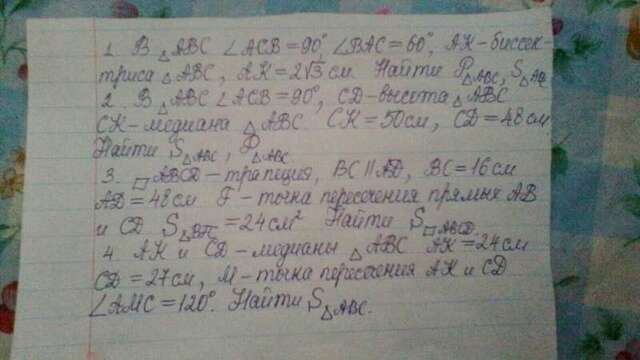 1. В △ABC ∠ACB=90° ∠BAC=60°, AK-биссек-
триса △ABC, AK=2√3 см Найти P△ABC, S△AB
2. В △ABC ∠ACB=90°, CD-высота △ABC
CK-медиана △ABC CK=50см, CD=48см
Найти S△ABC, P△ABC
3. □ABCD-трапеция, BC∥AD, BC=16см
AD=48см F-точка пересечения прямых AB
и CD S△BFC=24см² Найти S□ABCD.
4. AK и CD-медианы △ABC AK=24см
CD=27см, M-точка пересечения AK и CD
∠AMC=120°. Найти S△ABC.